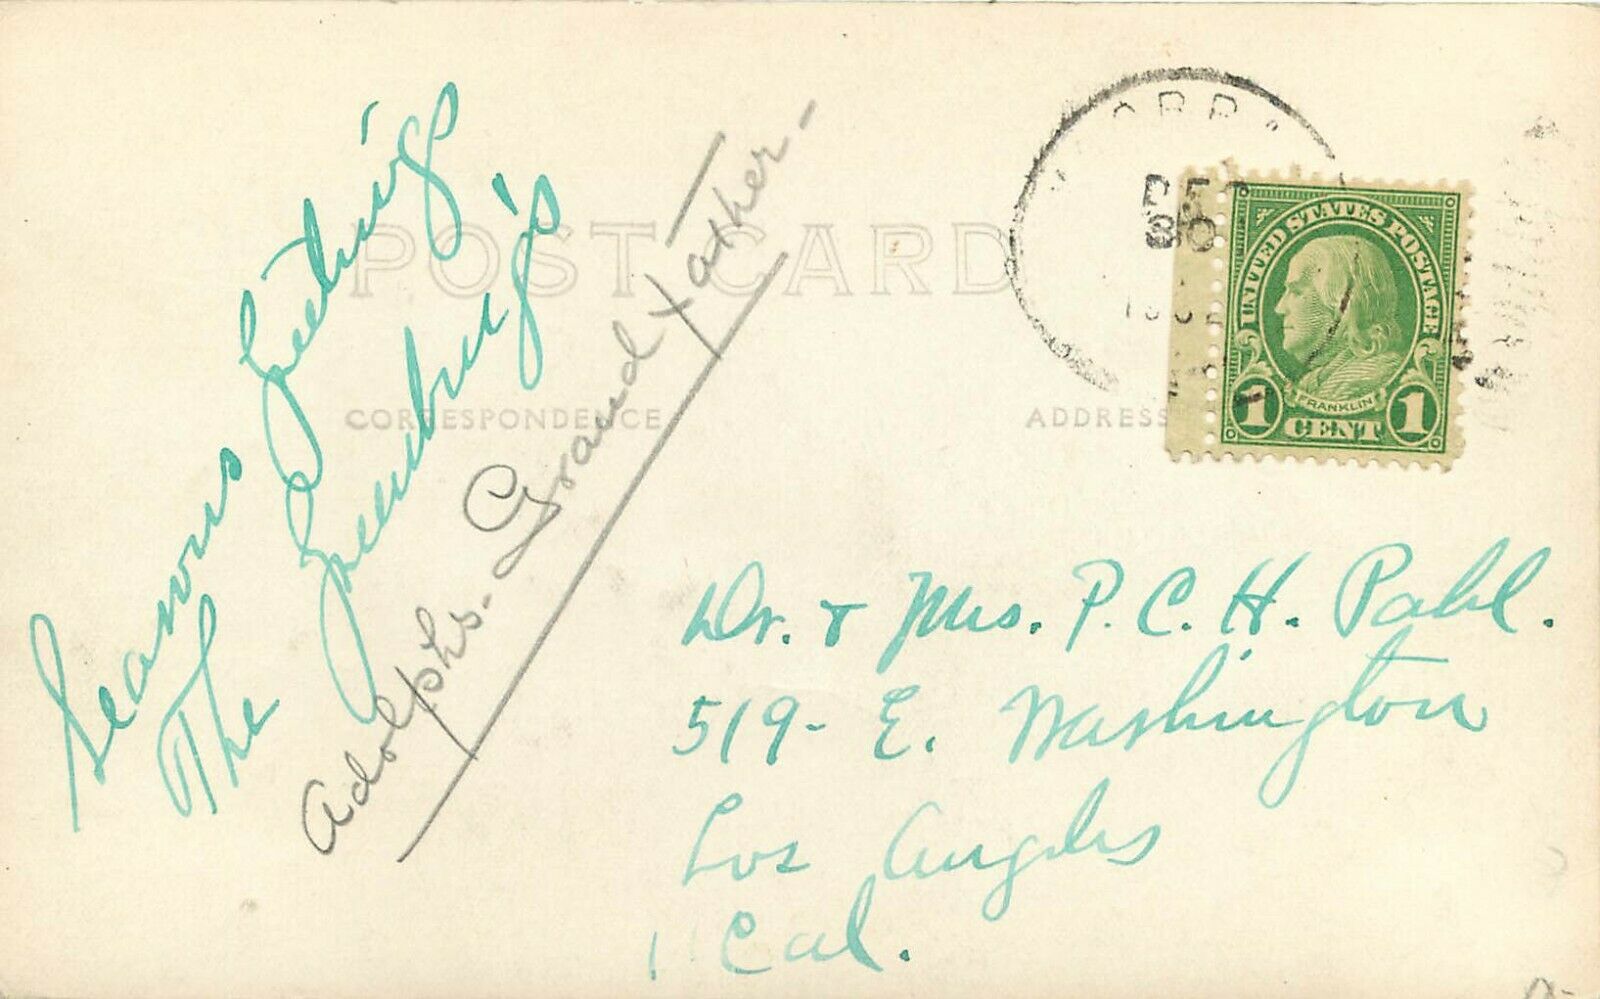 Seasons Greetings
The Greenburg's
Adolphs. Grandfather-
POST CARD
CORRESPONDENCE
ADDRESS
UNITED STATES POSTAGE
FRANKLIN
1 CENT 1
Dr. & Mrs. P. C. H. Pahl.
519- E. Washington
Los Angeles
Cal.